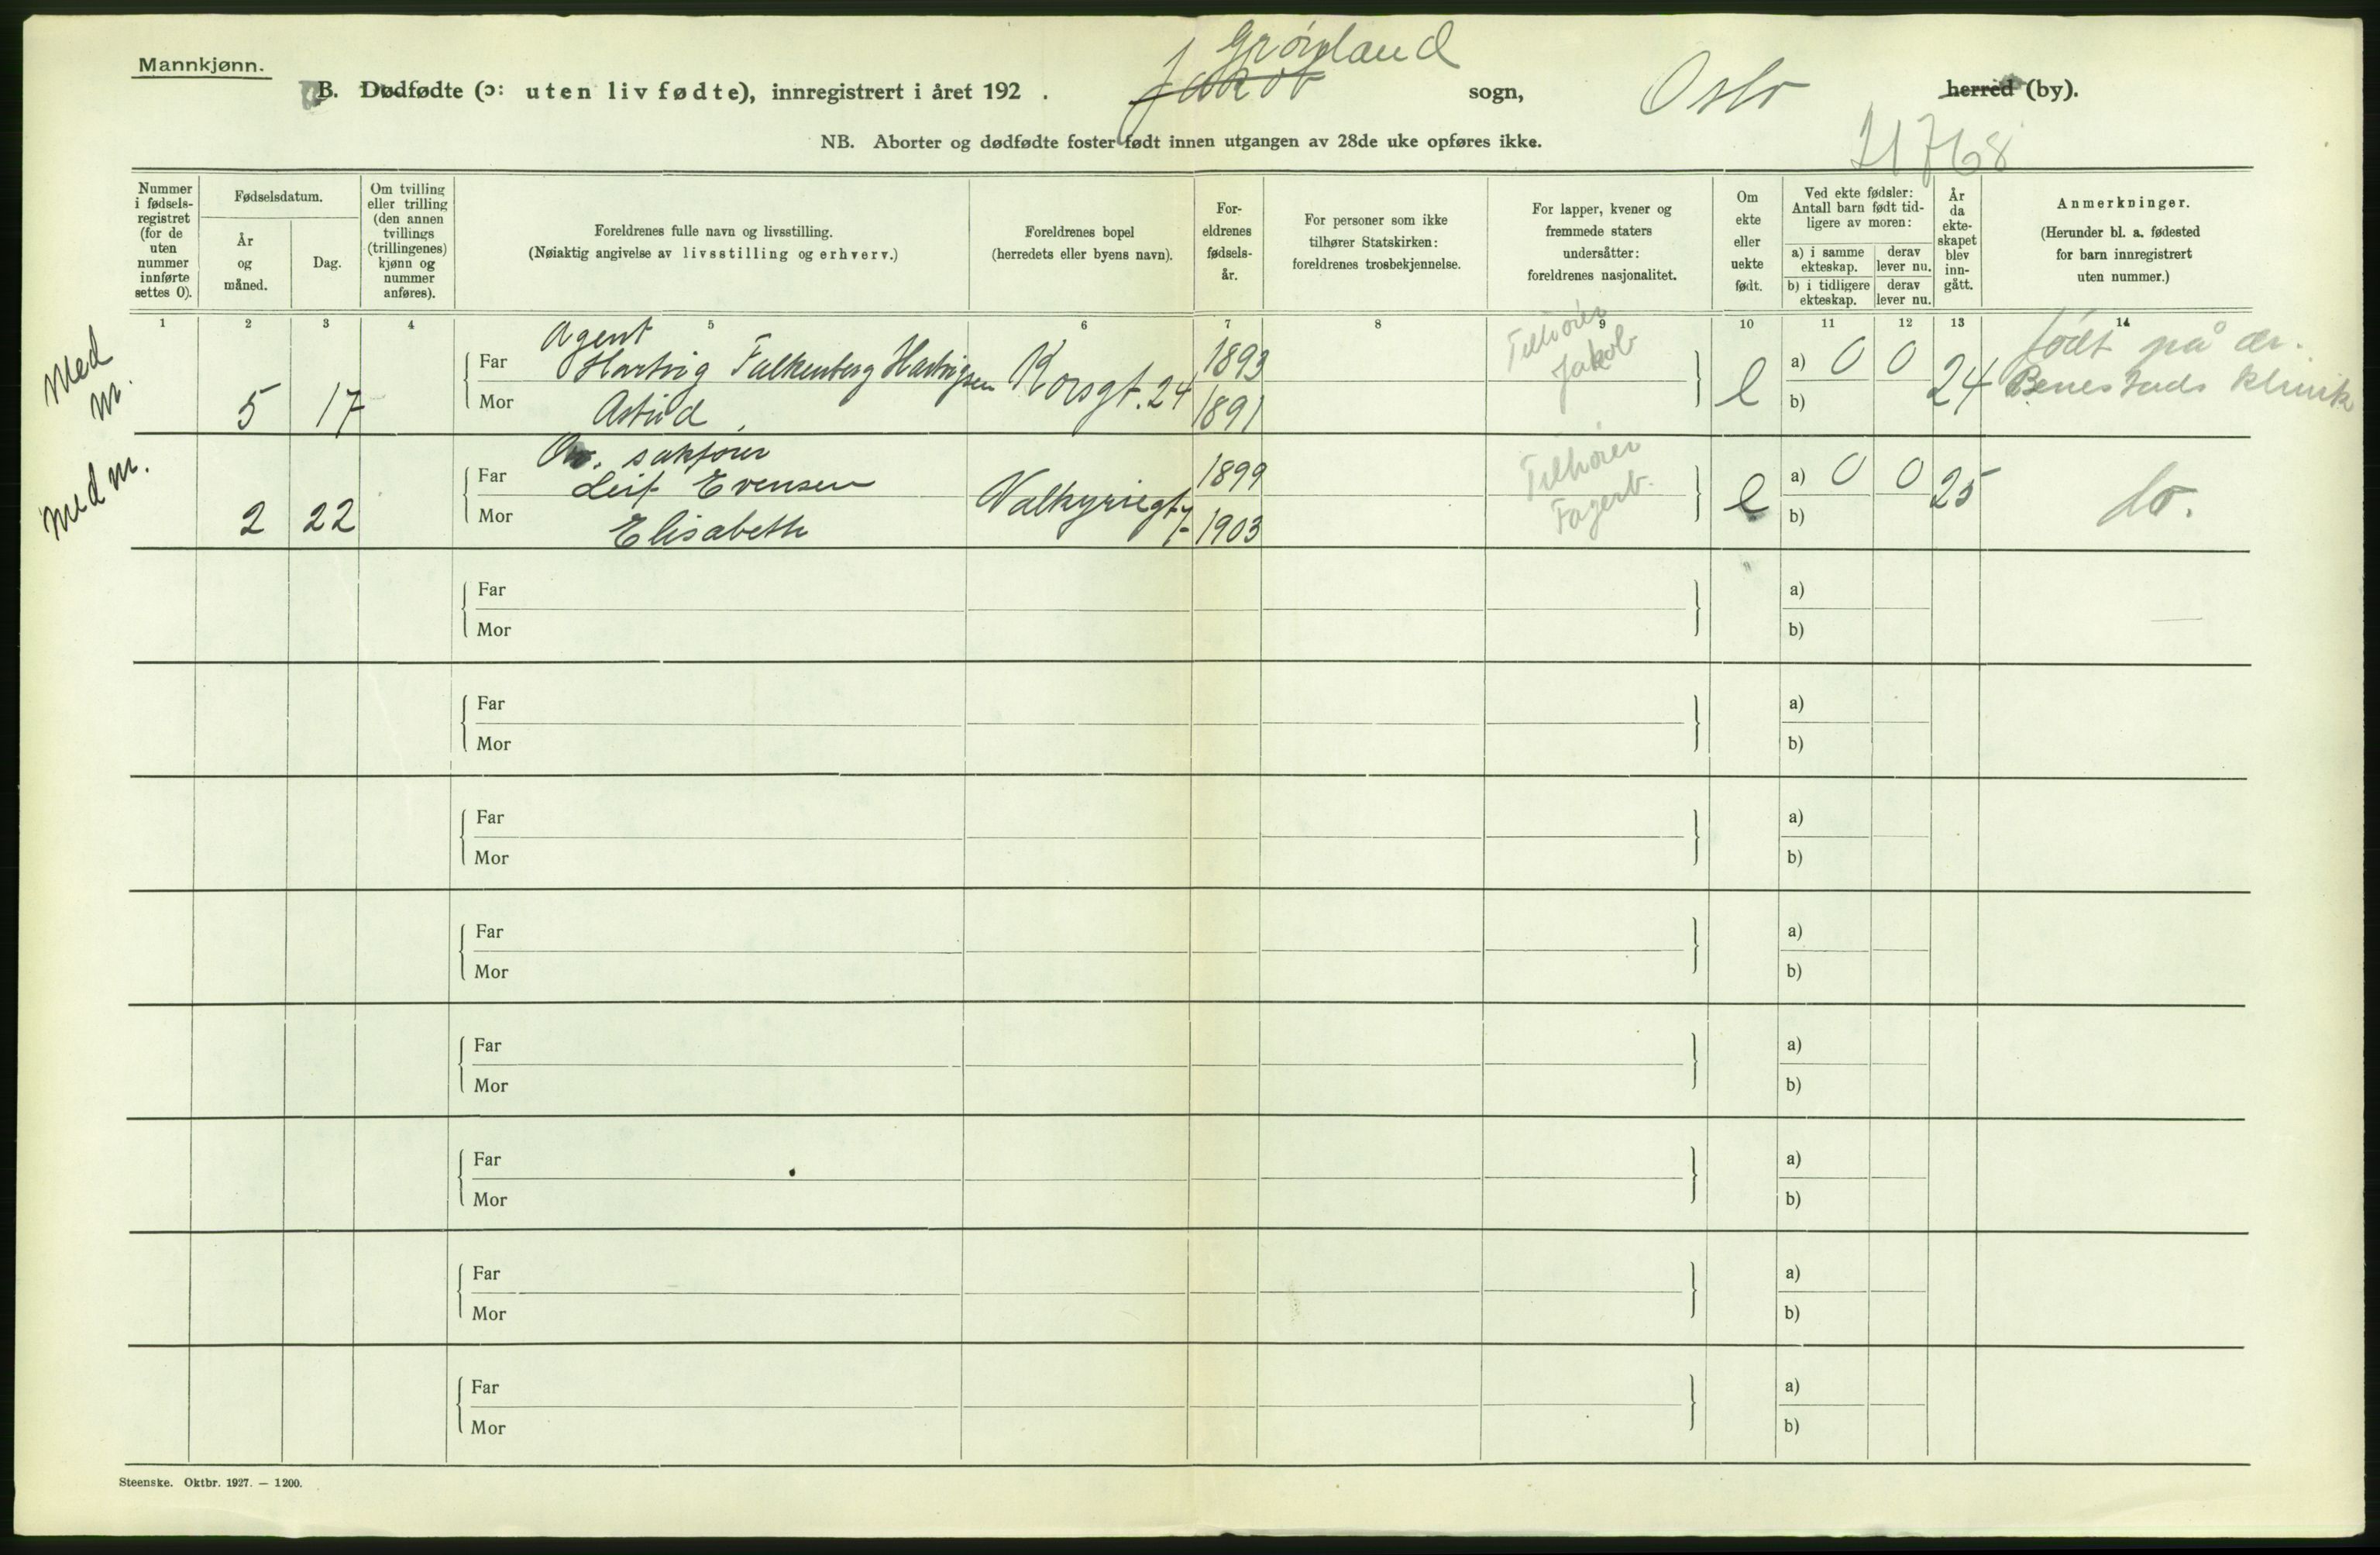 Mannkjønn.
Grønland
Jakob
B. Dødfødte (ɔ: uten liv fødte), innregistrert i året 192 . sogn, Oslo herred (by).
NB. Aborter og dødfødte foster født innen utgangen av 28de uke opføres ikke.
Nummer i fødsels-registret (for de uten nummer innførte settes 0).
Fødselsdatum.
År og måned.
Dag.
Om tvilling eller trilling (den annen tvillings (trillingenes) kjønn og nummer anføres).
Foreldrenes fulle navn og livsstilling.
(Nøiaktig angivelse av livsstilling og erhverv.)
Foreldrenes bopel
(herredets eller byens navn).
For-eldrenes fødsels-år.
For personer som ikke tilhører Statskirken: foreldrenes trosbekjennelse.
For lapper, kvener og fremmede staters undersåtter: foreldrenes nasjonalitet.
Om ekte eller uekte født.
Ved ekte fødsler: Antall barn født tid-ligere av moren:
a) i samme ekteskap.
derav lever nu.
b) i tidligere ekteskap.
derav lever nu.
År da ekte-skapet blev inn-gått.
Anmerkninger.
(Herunder bl. a. fødested for barn innregistrert uten nummer.)
1 2 3 4 5 6 7 8 9 10 11 12 13 14
Med m.
5 17
Agent
Far Hartvig Falkenberg Hartvigsen
Mor Astrid
Korsgt. 24
1893
1891
Tilhører Jakob
e
a) 0 0
b)
24
født på dr. Benestads klinik
Med m.
2 22
sakfører
Far Leif Evensen
Mor Elisabeth
Valkyriegt. 7
1899
1903
Tilhører Fagerb.
e
a) 0 0
b)
25
do.
Far a)
Mor b)
Far a)
Mor b)
Far a)
Mor b)
Far a)
Mor b)
Far a)
Mor b)
Far a)
Mor b)
Far a)
Mor b)
Far a)
Mor b)
Steenske. Oktbr. 1927. — 1200.